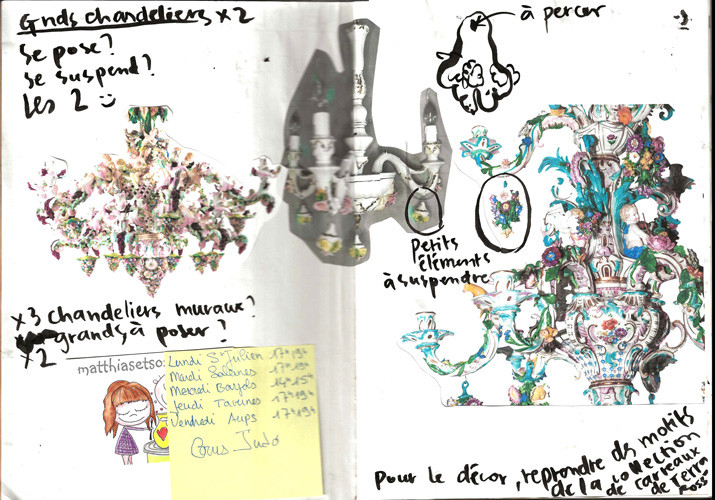 Gnds chandeliers x2
se pose?
se suspend?
les 2
à percer
petits
éléments
à suspendre
x3 chandeliers muraux?
grands, à poser?
x2
matthiasetso
Lundi St Julien 17h-19h
Mardi Salernes 17h-19h
Mercredi
Jeudi Tavernes 17h-19h
Vendredi Aups 17h-19h
Cours Judo
Pour le décor, reprendre des motifs
de la collection
de carreaux
de Terra
Rossa